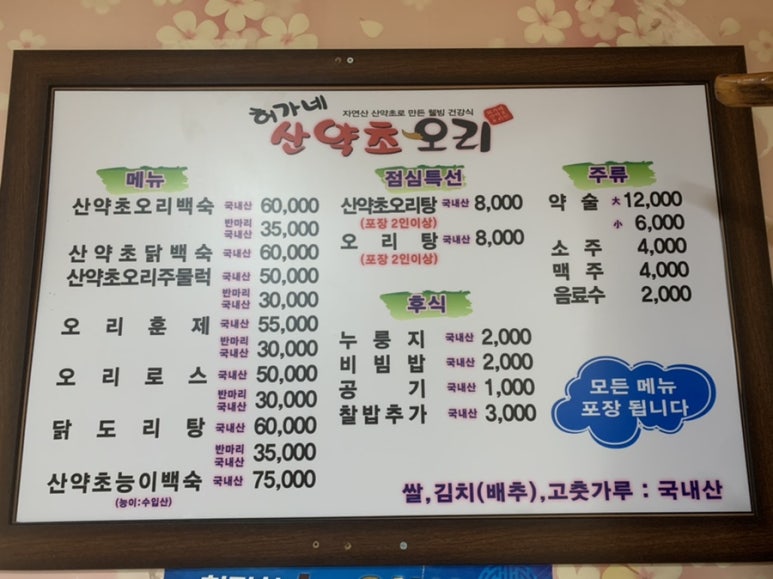 허가네 자연산 산약초로 만든 웰빙 건강식
산약초오리
메뉴
산약초오리백숙 국내산 60,000
반마리 국내산 35,000
산약초닭백숙 국내산 60,000
산약초오리주물럭 국내산 50,000
반마리 국내산 30,000
오리훈제 국내산 55,000
반마리 국내산 30,000
오리로스 국내산 50,000
반마리 국내산 30,000
닭도리탕 국내산 60,000
반마리 국내산 35,000
산약초능이백숙 국내산 75,000
(능이:수입산)
점심특선
산약초오리탕 국내산 8,000
(포장 2인이상)
오리탕 국내산 8,000
(포장 2인이상)
후식
누룽지 국내산 2,000
비빔밥 국내산 2,000
공기 국내산 1,000
찰밥추가 국내산 3,000
주류
약술 大 12,000
小 6,000
소주 4,000
맥주 4,000
음료수 2,000
모든 메뉴
포장 됩니다
쌀,김치(배추),고춧가루 : 국내산